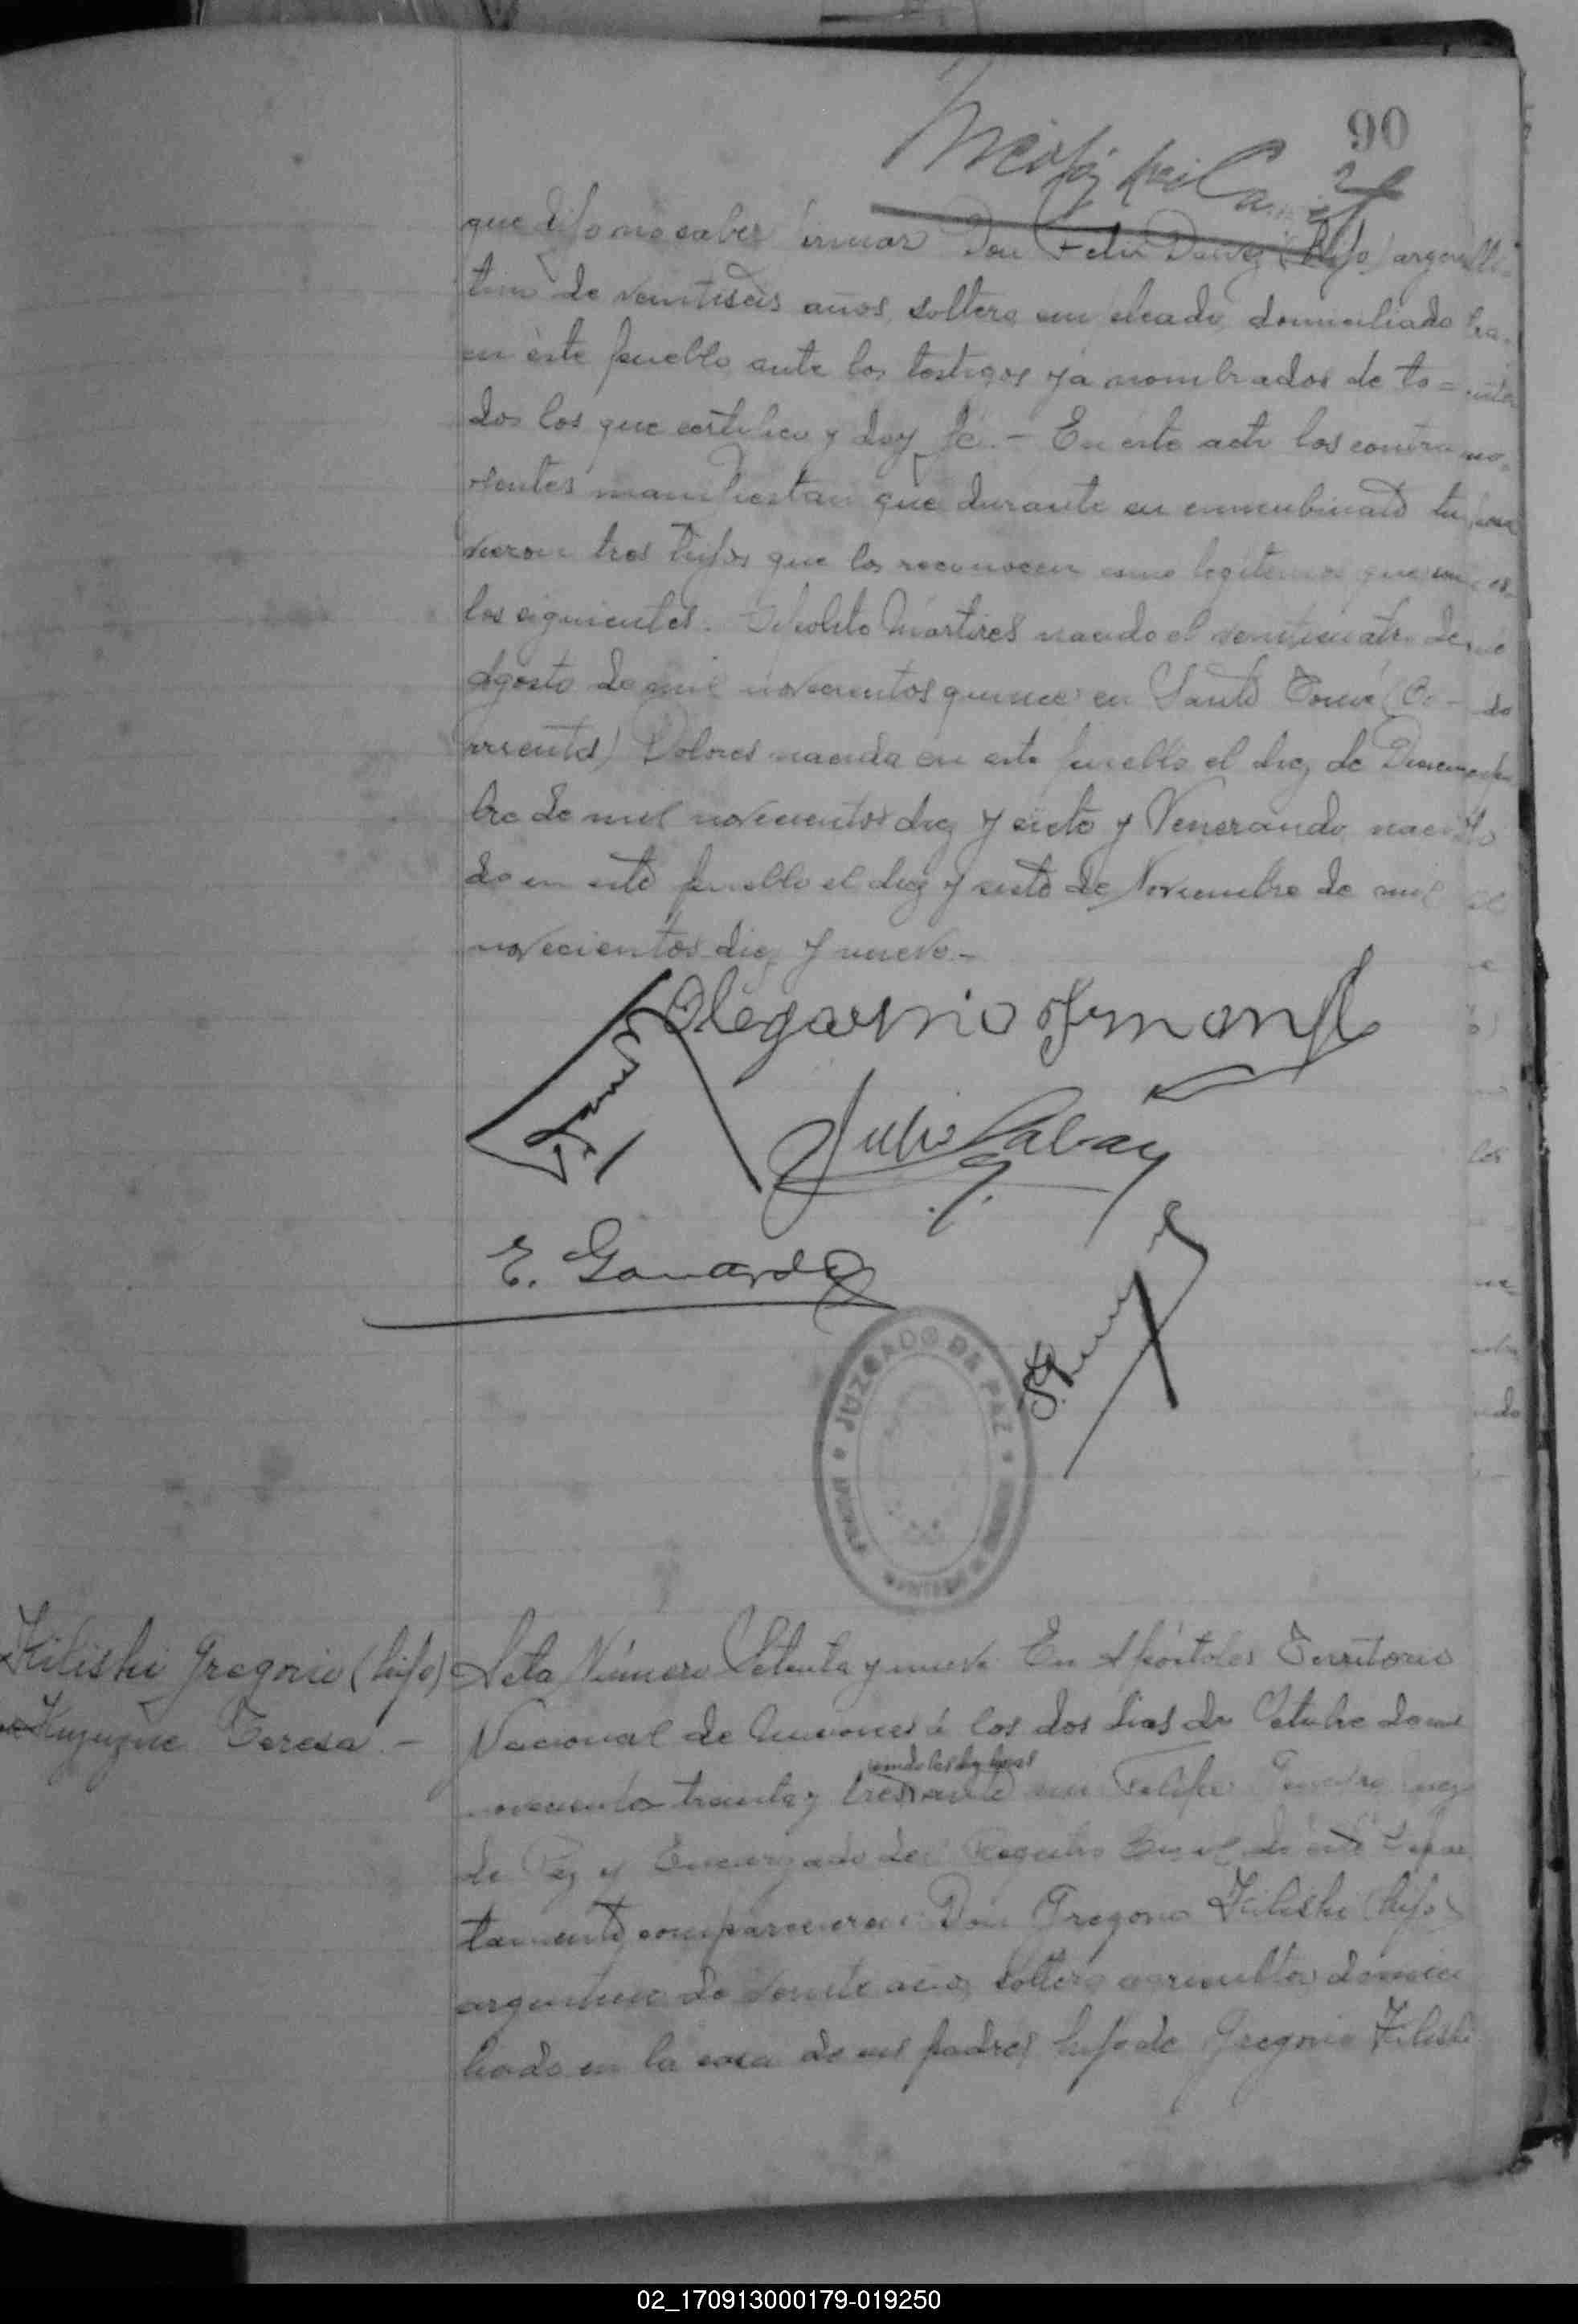 90
que dijo no saber firmar Don Felix (hijo) argen
tino de ventiseis años, soltero empleado domiciliado
en éste pueblo, ante los testigos ya nombrados de to=
dos los que certifico y doy fé.- En este acto los contra
yentes manifiestan que durante su concubinato tu
vieron tres hijos que los reconocen como legitimos que son
los siguientes. Ipolito Martires nacido el venticuatro de
Agosto de mil novecientos quince en Santo Tomé (Co-
rrientes) Dolores nacida en este pueblo el diez de Diciem
bre de mil novecientos diez y siete y Venerando naci
do en este pueblo el diez y siete de Noviembre de mil
novecientos diez y nueve.-
Olegario
Julio
E.
JUZGADO DE PAZ
Kiliski Gregorio (hijo)
Teresa.-
Acta Número Setenta y nueve En Apóstoles Territorio
Nacional de Misiones á los dos dias de Octubre de mil
siendo las diez horas
novecientos treinta y tres ante mi Felipe Juez
de Paz y Encargado del Registro Civil de este Depar
tamento comparecieron: Don Gregorio Kiliski (hijo)
argentino de veinte años, soltero agricultor, domici
liado en la casa de sus padres, hijo de Gregorio Kiliski
02_170913000179-019250